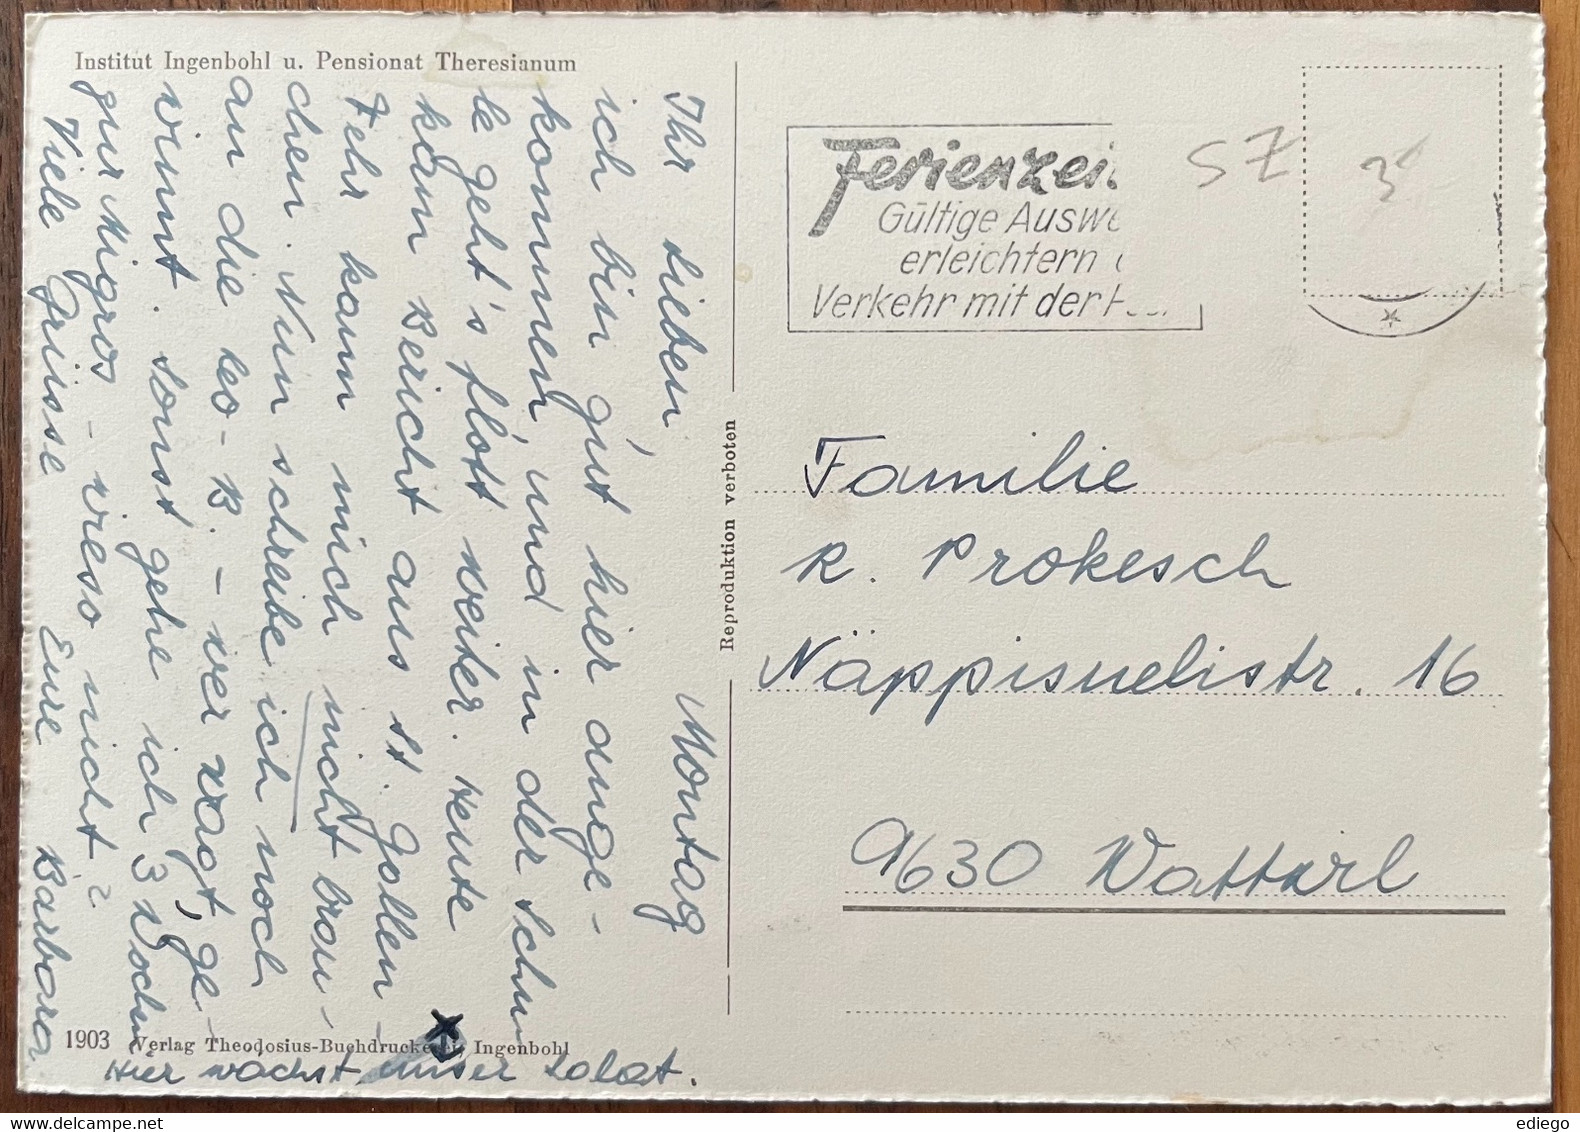 Institut Ingenbohl u. Pensionat Theresianum
Montag
Ihr Lieben,
ich bin gut hier ange-
kommen, und in der Schu
le geht's flott weiter. Heute
kam Bericht aus St. Gallen -
Fehr kann mich nicht brau-
chen. Nun schreibe ich noch
an die ko-B. - wer wagt, ge-
winnt. Sonst gehe ich 3 Wochen
zur Migros - wieso nicht?
Viele Grüsse Eure Barbara
1903 Verlag Theodosius-Buchdruckerei Ingenbohl
Hier wächst unser Salat.
Reproduktion verboten
Ferienzei
Gültige Auswe
erleichtern
Verkehr mit der P
SZ
3
Familie
R. Prokesch
Näppisuelistr. 16
9630 Wattwil
ediego